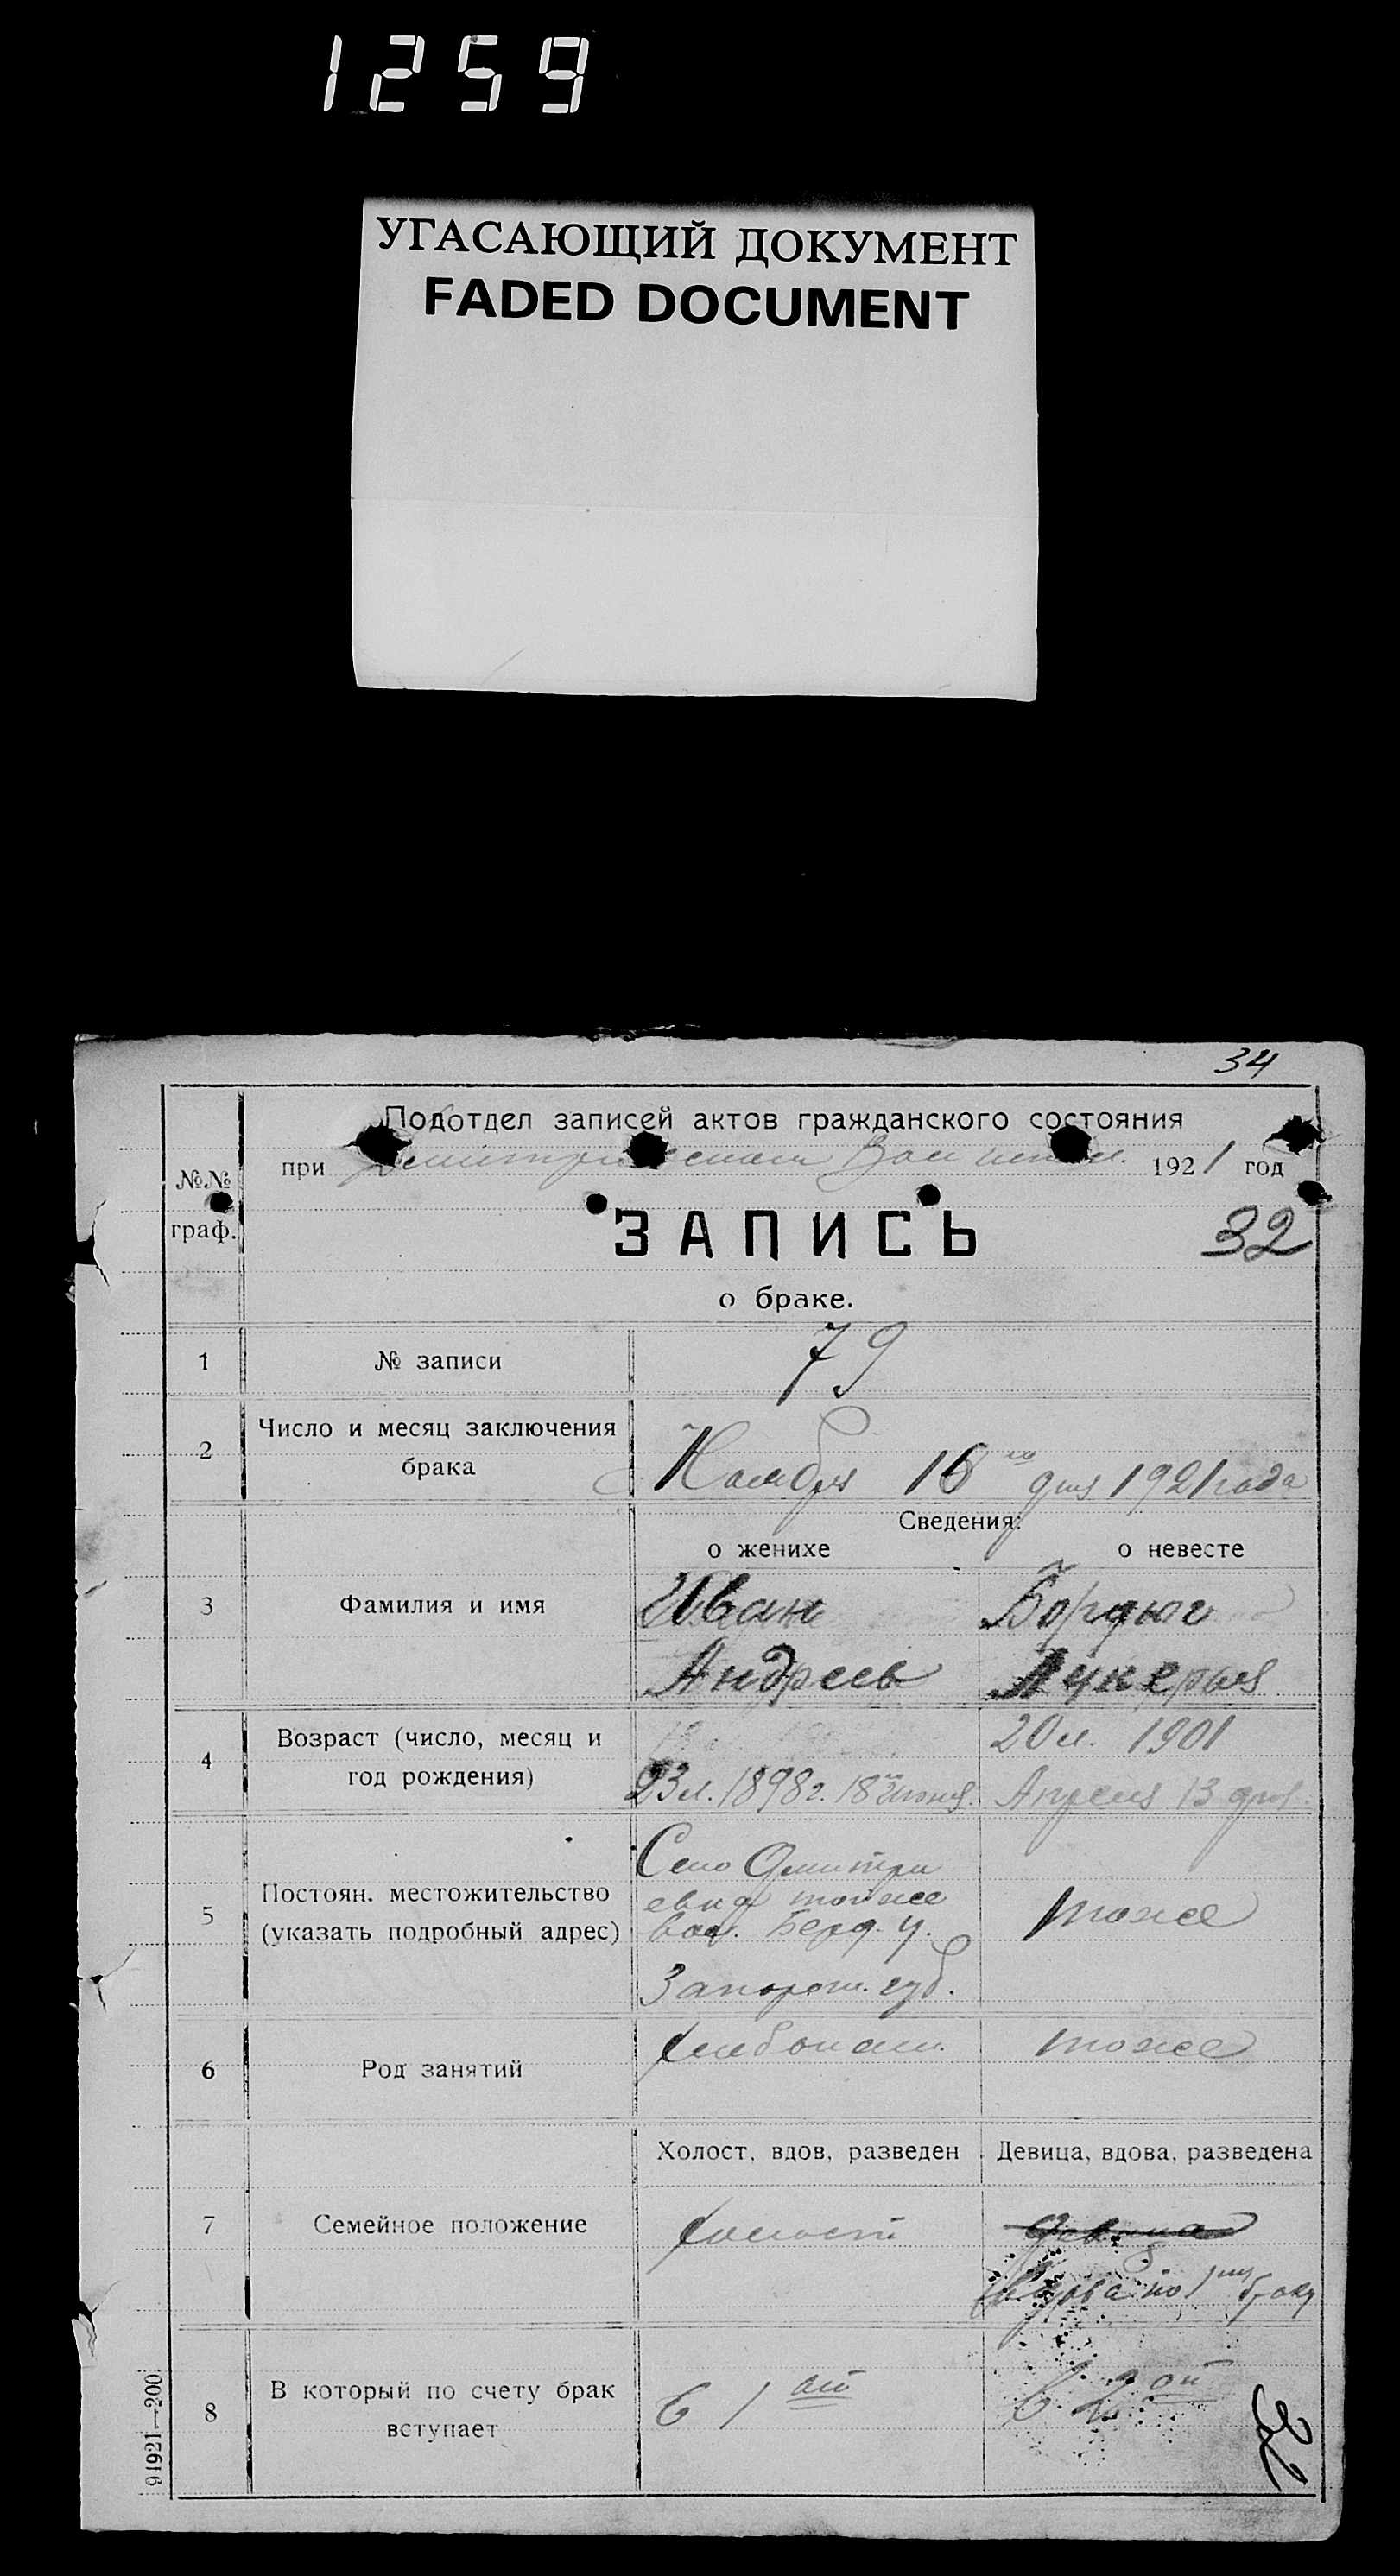 1259
УГАСАЮЩИЙ ДОКУМЕНТ
FADED DOCUMENT
34
Подотдел записей актов гражданского состояния
при 1921 год
№№
граф.
ЗАПИСЬ
32
о браке.
1 № записи 79
2 Число и месяц заключения
брака
Ноября 16 го дня 1921 года
Сведения:
о женихе о невесте
3 Фамилия и имя
Иван Бордюг
Андреев Лукерья
4 Возраст (число, месяц и
год рождения)
20 л. 1901
23 л. 1898 г. 18 Июня. Апреля 13 дня.
5 Постоян. местожительство
(указать подробный адрес)
Село Дмитри
евка тойже тоже
вол. Берд. у.
Запорож. губ.
6 Род занятий
хлебопаш. тоже
Холост, вдов, разведен Девица, вдова, разведена
7 Семейное положение
холост девица
вдова по 1му браку
8 В который по счету брак
вступает
в 1 ый в 2 ой
91921—200.